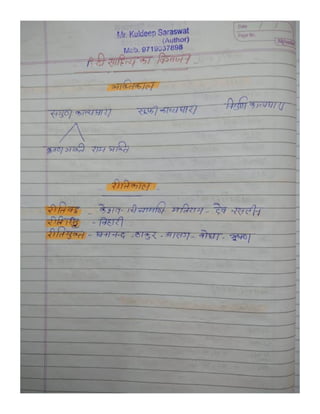 Mr. Kuldeep Saraswat
(Author)
Mob. 9719037698
Date
Page No.
हिन्दी साहित्य का विभाजन
भक्तिकाल
सगुण काव्यधारा सूफी काव्यधारा निर्गुण काव्यधारा
कृष्ण भक्ति राम भक्ति
रीतिकाल
रीतिबद्ध - केशव चिंतामणि मतिराम - देव
रीतिसिद्ध - बिहारी
रीतिमुक्त - घनानन्द ठाकुर - आलम - बोधा - भूषण